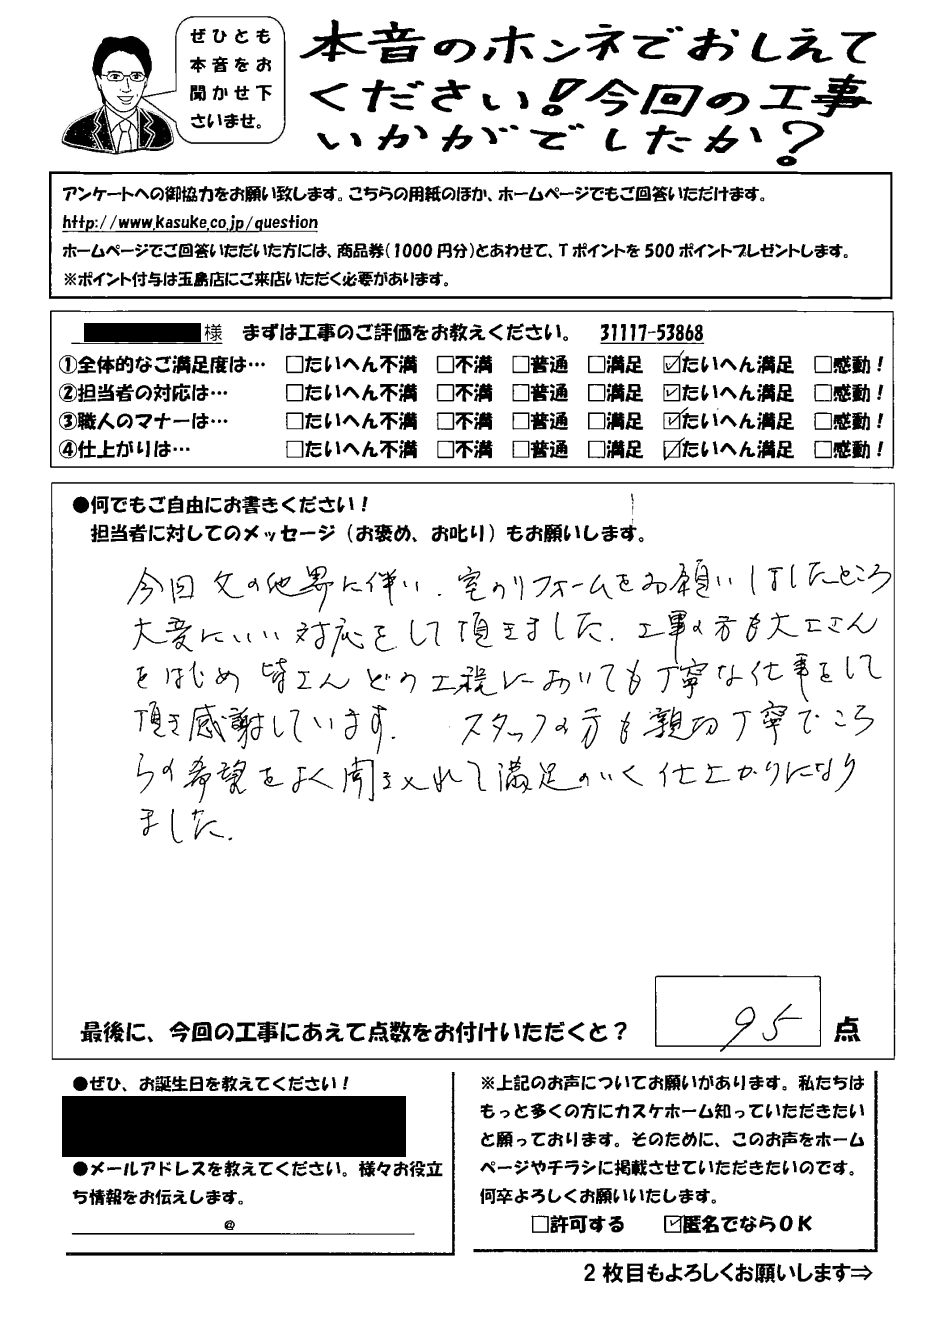 ぜひとも
本音をお
聞かせ下
さいませ。
本音のホンネでおしえて
ください!今回の工事
いかがでしたか?
アンケートへの御協力をお願い致します。こちらの用紙のほか、ホームページでもご回答いただけます。
http://www.kasuke.co.jp/question
ホームページでご回答いただいた方には、商品券(1000円分)とあわせて、Tポイントを500ポイントプレゼントします。
※ポイント付与は玉島店にご来店いただく必要があります。
様 まずは工事のご評価をお教えください。 31117-53868
①全体的なご満足度は… □たいへん不満 □不満 □普通 □満足 ☑たいへん満足 □感動!
②担当者の対応は… □たいへん不満 □不満 □普通 □満足 ☑たいへん満足 □感動!
③職人のマナーは… □たいへん不満 □不満 □普通 □満足 ☑たいへん満足 □感動!
④仕上がりは… □たいへん不満 □不満 □普通 □満足 ☑たいへん満足 □感動!
●何でもご自由にお書きください!
担当者に対してのメッセージ(お褒め、お叱り)もお願いします。
今回父の他界に伴い、室のリフォームをお願いしましたところ
大変にいい対応をして頂きました。工事の方も大工さん
をはじめ皆さんどの工程においても丁寧な仕事をして
頂き感謝しています。 スタッフの方も親切丁寧でこち
らの希望をよく聞き入れて満足のいく仕上がりになり
ました。
最後に、今回の工事にあえて点数をお付けいただくと? 95 点
●ぜひ、お誕生日を教えてください!
●メールアドレスを教えてください。様々お役立
ち情報をお伝えします。
@
※上記のお声についてお願いがあります。私たちは
もっと多くの方にカスケホーム知っていただきたい
と願っております。そのために、このお声をホーム
ページやチラシに掲載させていただきたいのです。
何卒よろしくお願いいたします。
□許可する ☑匿名でならOK
2枚目もよろしくお願いします⇒